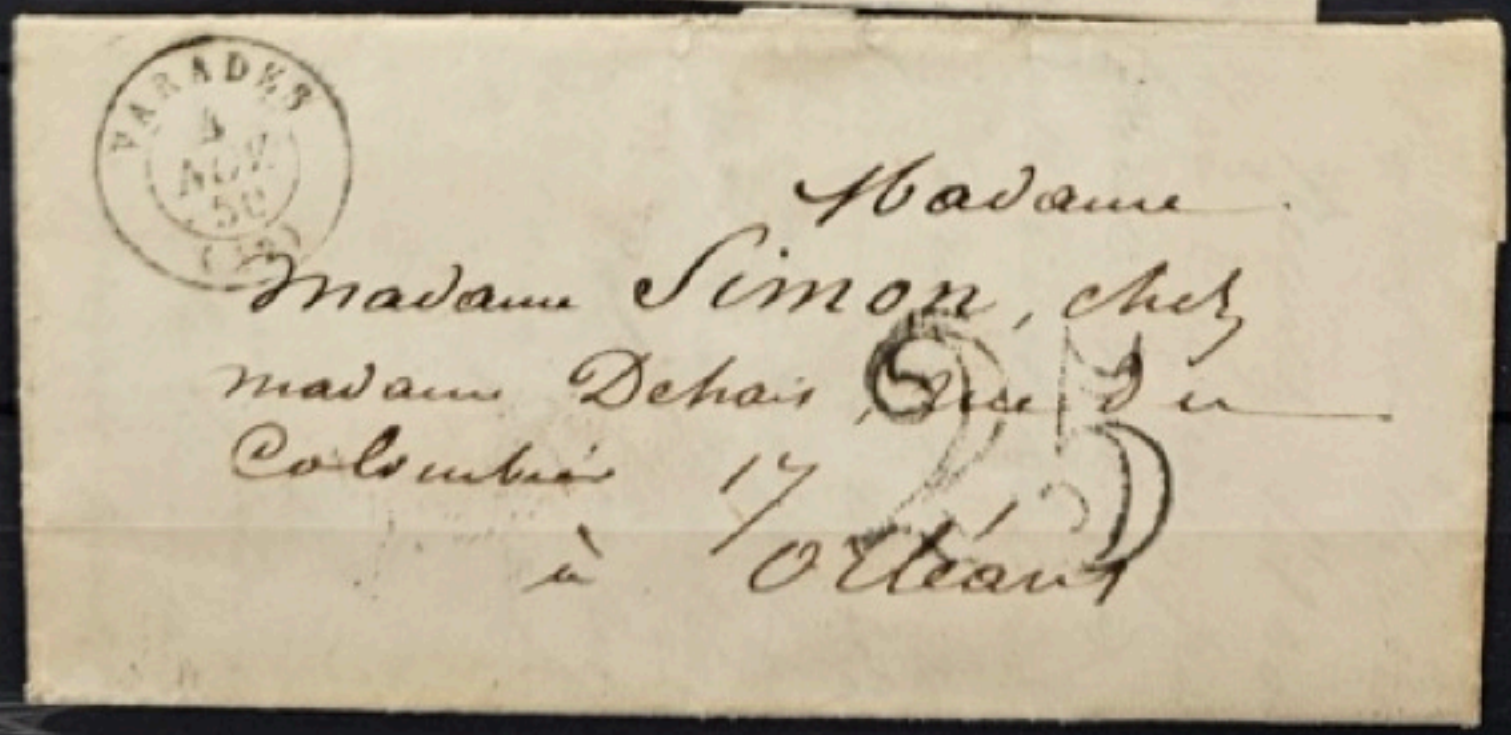 VARADES
4
NOV.
50
Madame
Madame Simon, chez
madame Dehais, rue du
Colombier 17
à Orléans
25